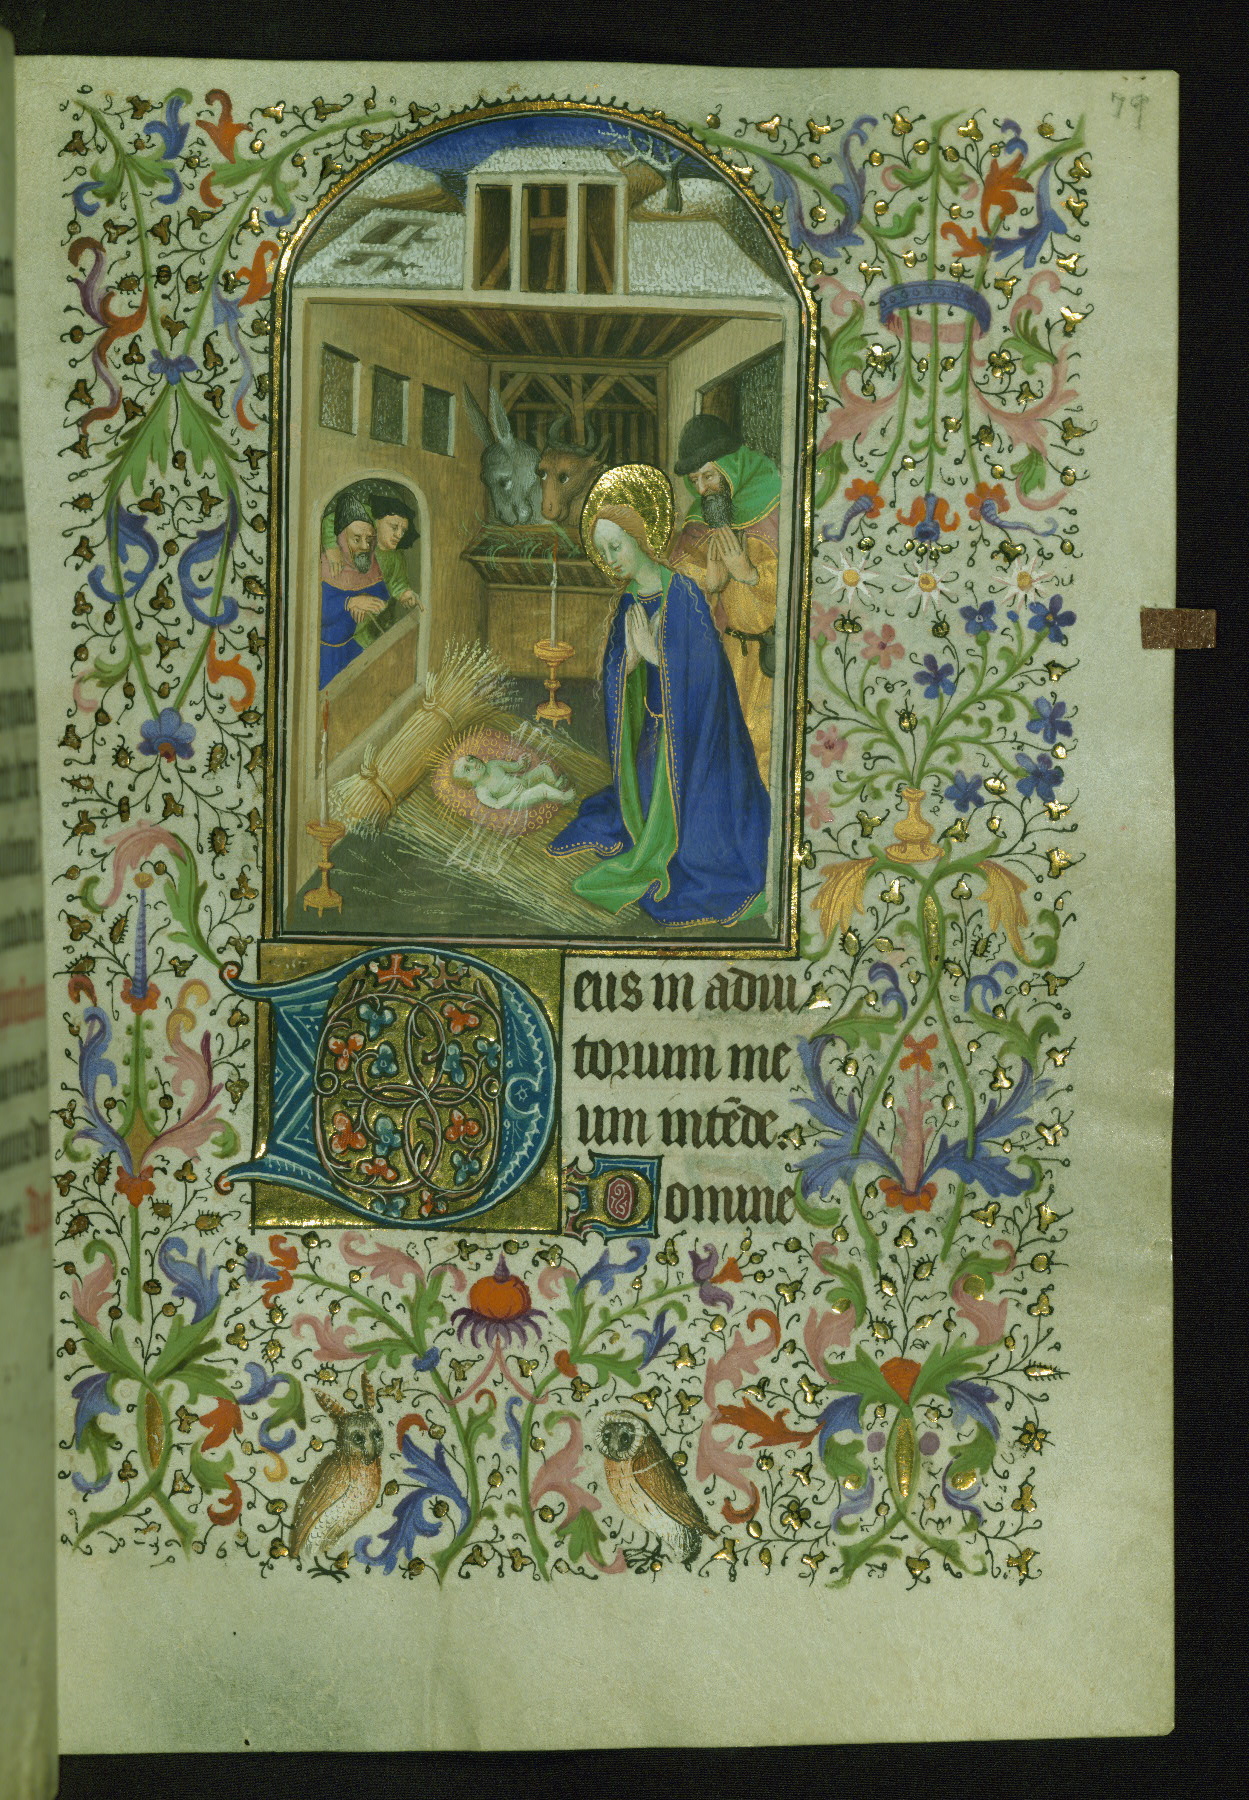 79
Deus in adiu
torium me
um intēde.
Domine